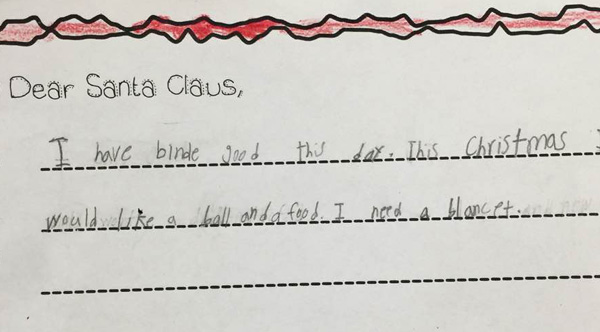 Dear Santa Claus,
I have binde good this dax. This Christmas I
would like a ball and a food. I need a blancet.